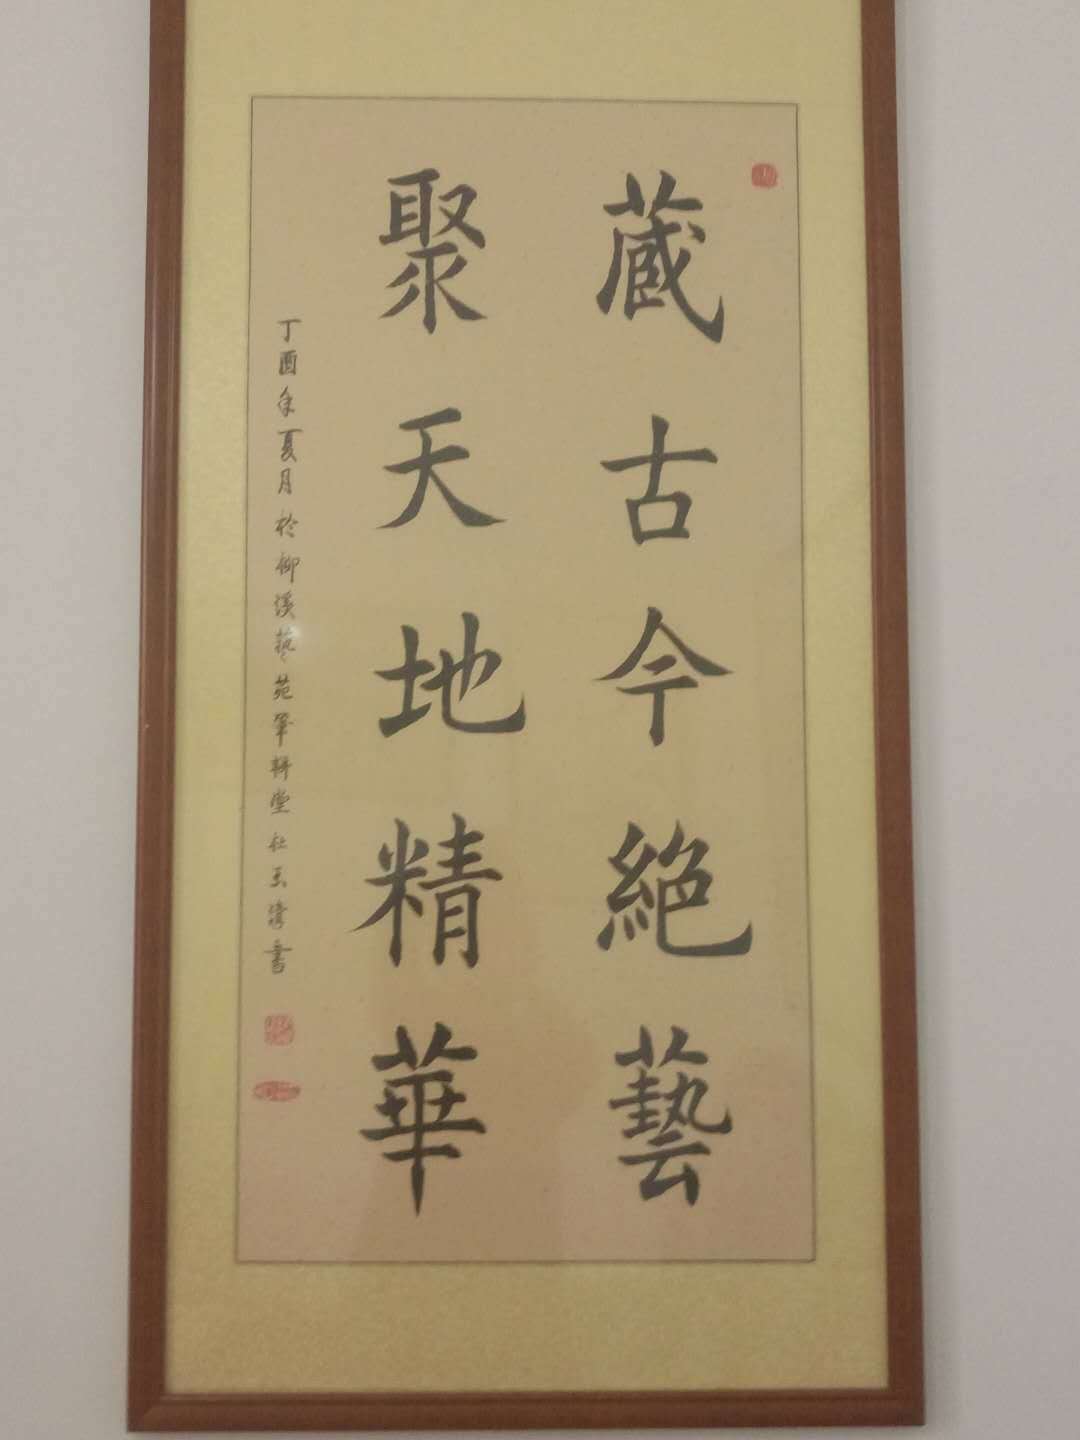 藏古今絕藝
聚天地精華
丁酉年夏月於柳溪藝苑筆耕堂杜玉清書